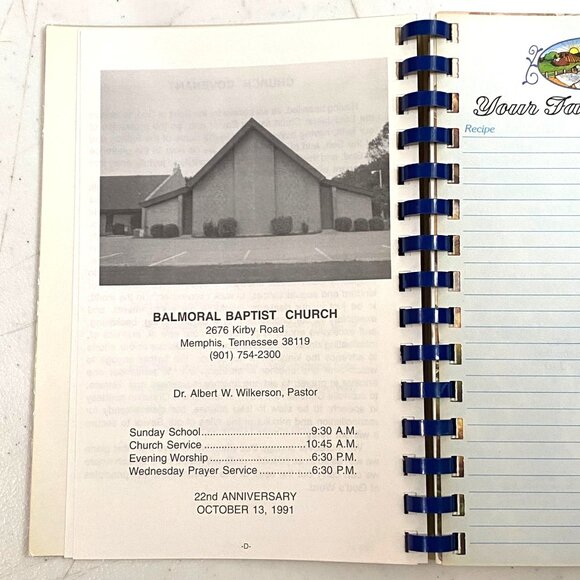 BALMORAL BAPTIST CHURCH
2676 Kirby Road
Memphis, Tennessee 38119
(901) 754-2300
Dr. Albert W. Wilkerson, Pastor
Sunday School..........................9:30 A.M.
Church Service.........................10:45 A.M.
Evening Worship.......................6:30 P.M.
Wednesday Prayer Service ...............6:30 P.M.
22nd ANNIVERSARY
OCTOBER 13, 1991
-D-
Your
Recipe